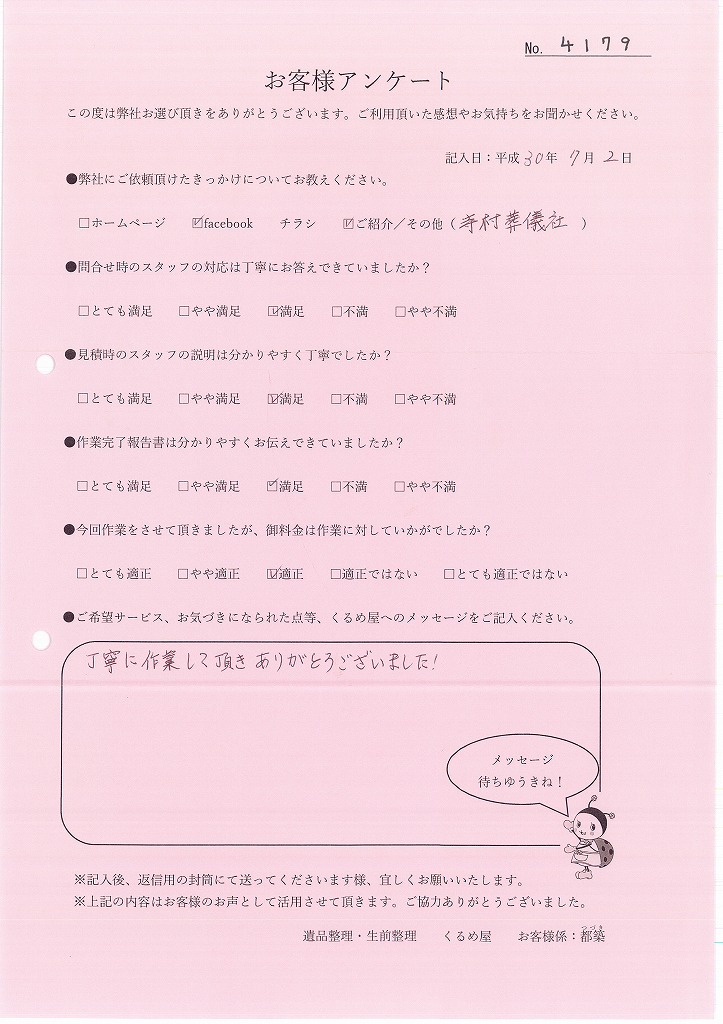 No. 4179
お客様アンケート
この度は弊社お選び頂きをありがとうございます。ご利用頂いた感想やお気持ちをお聞かせください。
記入日：平成30年 7月 2日
●弊社にご依頼頂けたきっかけについてお教えください。
□ホームページ ☑facebook チラシ ☑ご紹介／その他（寺村葬儀社）
●問合せ時のスタッフの対応は丁寧にお答えできていましたか？
□とても満足 □やや満足 ☑満足 □不満 □やや不満
●見積時のスタッフの説明は分かりやすく丁寧でしたか？
□とても満足 □やや満足 ☑満足 □不満 □やや不満
●作業完了報告書は分かりやすくお伝えできていましたか？
□とても満足 □やや満足 ☑満足 □不満 □やや不満
●今回作業をさせて頂きましたが、御料金は作業に対していかがでしたか？
□とても適正 □やや適正 ☑適正 □適正ではない □とても適正ではない
●ご希望サービス、お気づきになられた点等、くるめ屋へのメッセージをご記入ください。
丁寧に作業して頂きありがとうございました!
メッセージ
待ちゆうきね！
※記入後、返信用の封筒にて送ってくださいます様、宜しくお願いいたします。
※上記の内容はお客様のお声として活用させて頂きます。ご協力ありがとうございました。
遺品整理・生前整理 くるめ屋 お客様係：都築
つづき